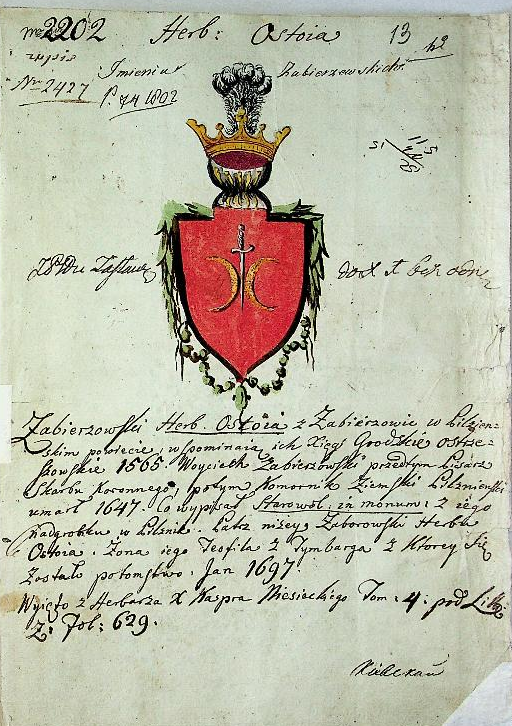 2202 Herb: Ostoia 13
Nro 2427 Imienia Zabierzewskich
1802
Zabierzowski Herb. Ostoia z Zabierzowic w Pilznen-
skim powiecie, wspominaią ich Xięgi Grodzkie ostrze-
szowskie 1565. Woyciech Zabierzowski przedtym Pisarz
Skarbu Koronnego, potym Komornik Ziemski Pilznienski
umarł 1647. Co wypisał Starowol. in monum: z iego
nadgrobku w Pilznie. Patrz niżey Zaborowski Herbu
Ostoia. Żona iego Teofila z Tymbarga z Ktorey się
Zostało potomstwo. Jan 1697.
Wyięto z Herbarza X Kaspra Niesieckiego Tom: 4. pod Lit:
Z: Fol: 629.